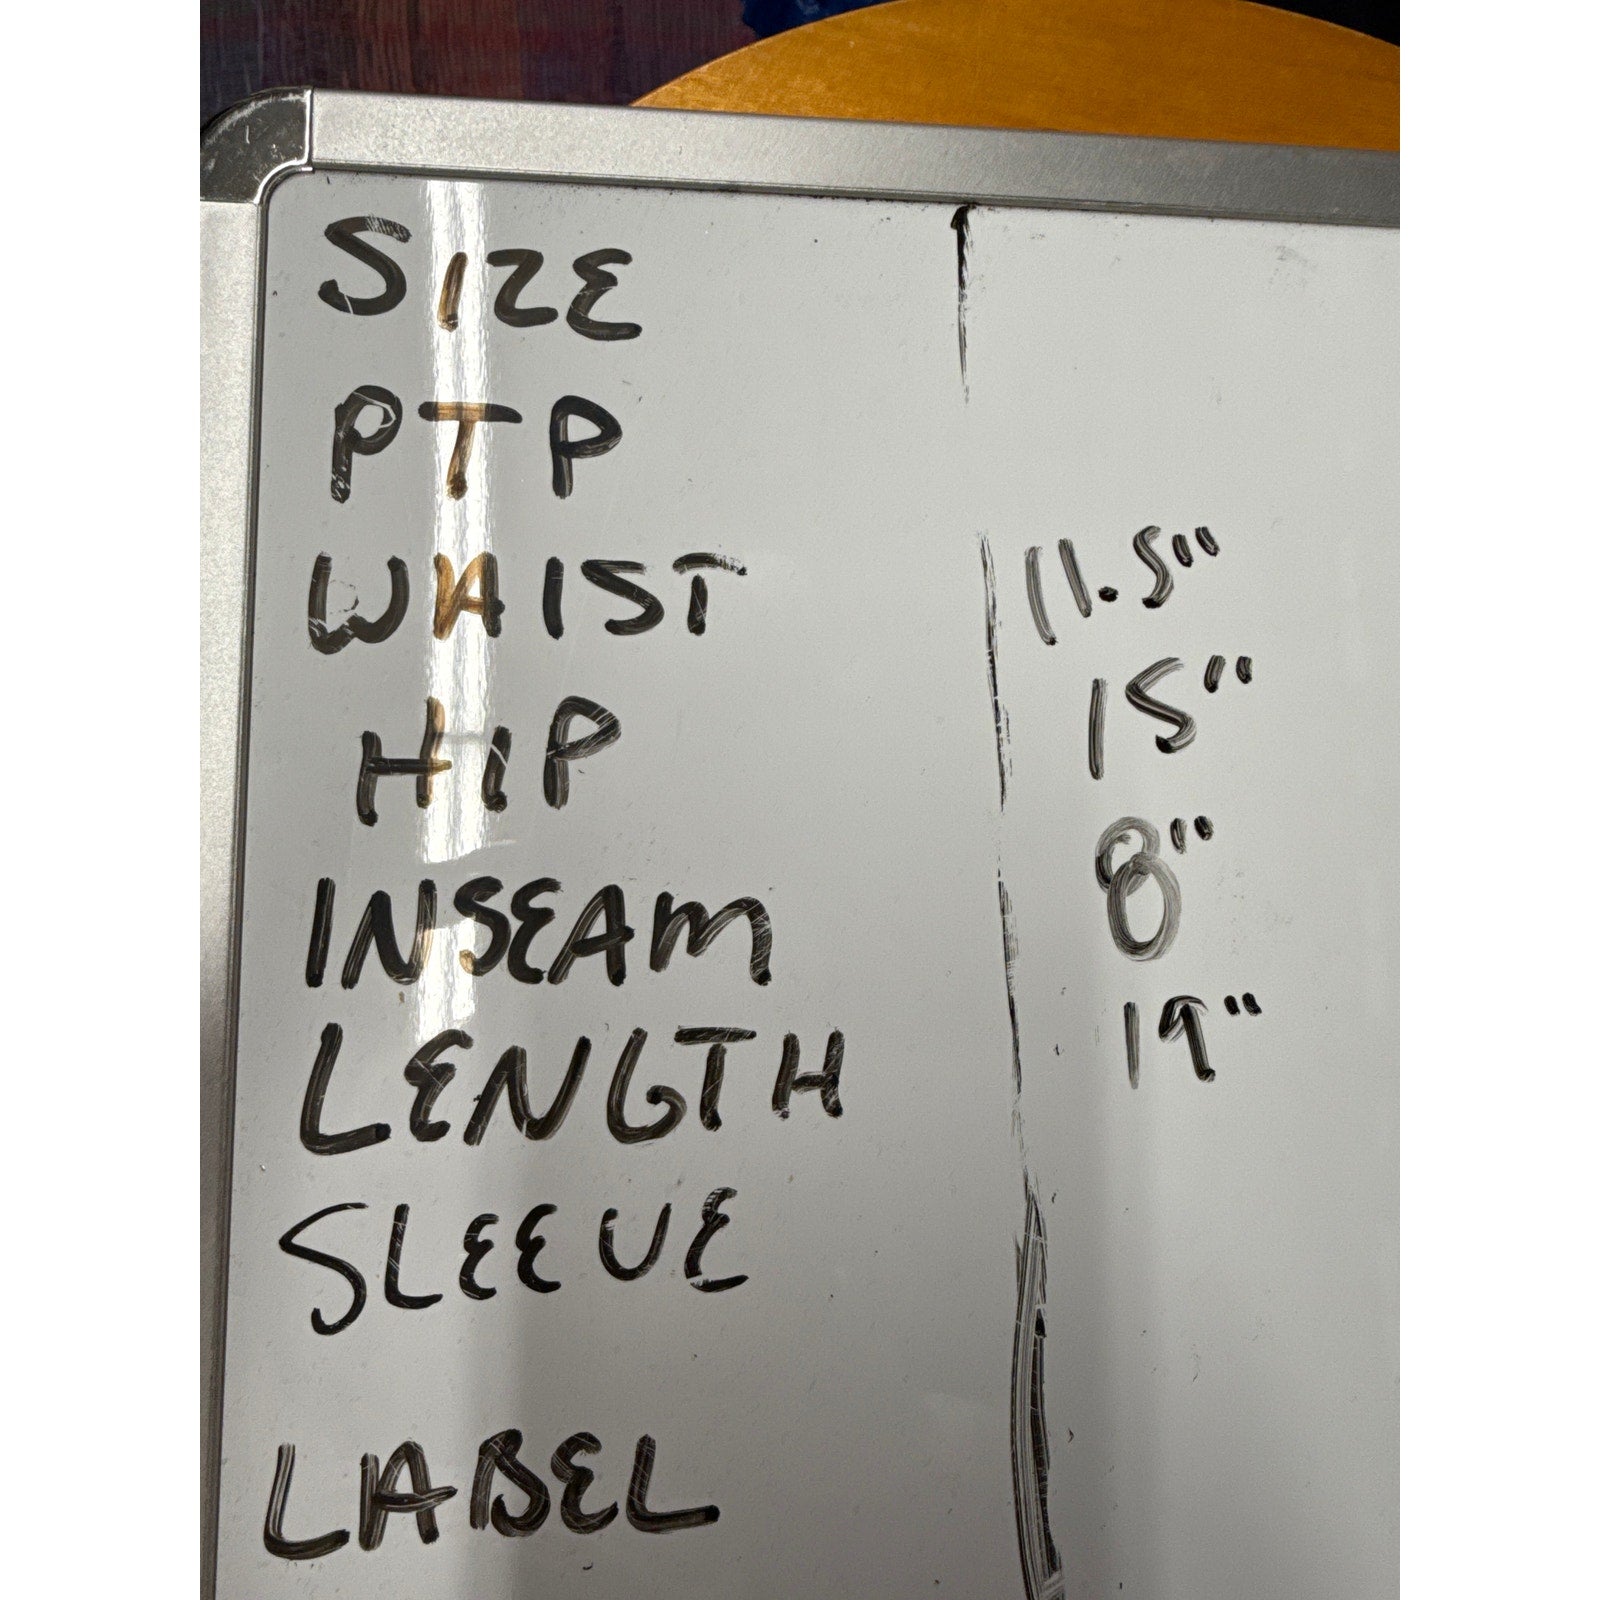 SIZE
PTP
WAIST 11.5"
HIP 15"
INSEAM 8"
LENGTH 19"
SLEEVE
LABEL